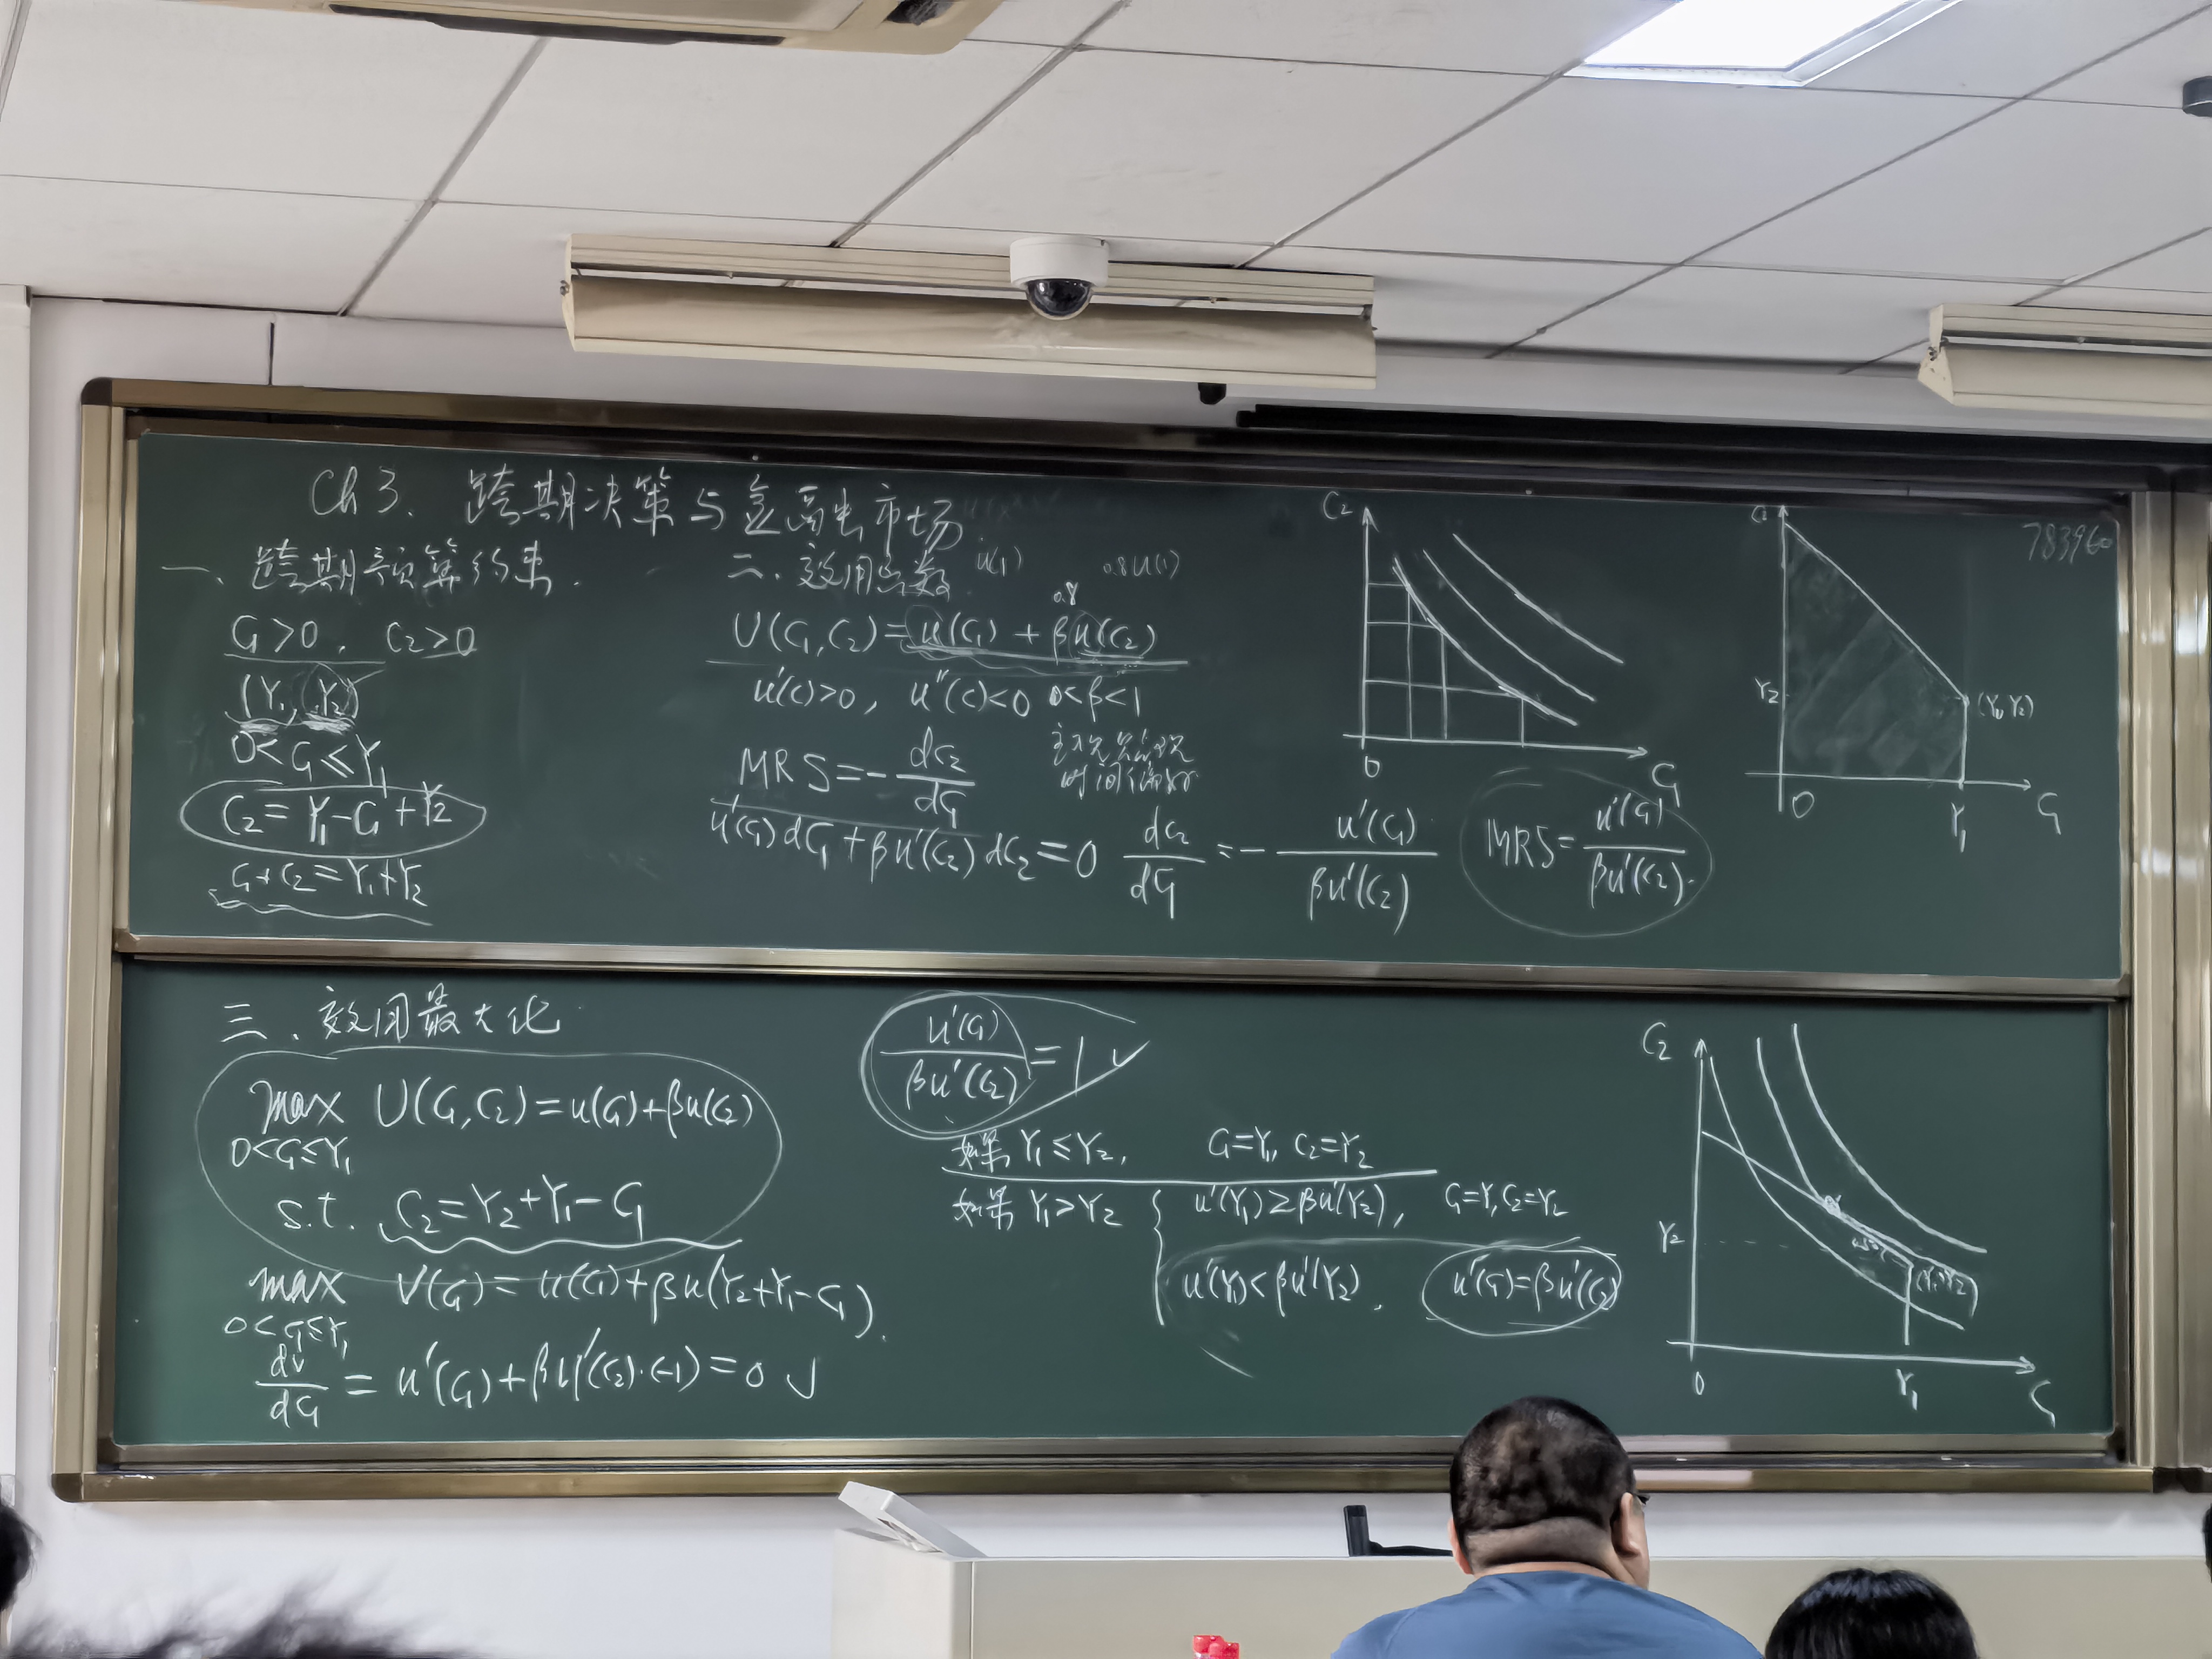 Ch 3. 跨期决策与金融市场
783960
一、跨期预算约束.
C₁>0, C₂>0
(Y₁, Y₂)
0<C₁≤Y₁
C₂=Y₁-C₁+Y₂
C₁+C₂=Y₁+Y₂
二、效用函数 u(1) 0.8u(1)
0.8
U(C₁,C₂)=u(C₁)+βu(C₂)
u'(c)>0, u''(c)<0 0<β<1
主观贴现
时间偏好
MRS=-dC₂/dC₁
u'(C₁)dC₁+βu'(C₂)dC₂=0 dC₂/dC₁=-u'(C₁)/βu'(C₂)
MRS=u'(C₁)/βu'(C₂).
C₂
0
C₁
C₂
Y₂
(Y₁,Y₂)
0
Y₁
C₁
三、效用最大化
max U(C₁,C₂)=u(C₁)+βu(C₂)
0<C₁≤Y₁
s.t. C₂=Y₂+Y₁-C₁
max V(C₁)=u(C₁)+βu(Y₂+Y₁-C₁).
0<C₁≤Y₁
dv/dC₁=u'(C₁)+βu'(C₂)·(-1)=0 √
u'(C₁)/βu'(C₂)=1 √
如果 Y₁≤Y₂, C₁=Y₁, C₂=Y₂
如果 Y₁>Y₂ { u'(Y₁)≥βu'(Y₂), C₁=Y₁, C₂=Y₂
u'(Y₁)<βu'(Y₂), u'(C₁)=βu'(C₂)
C₂
Y₂
(Y₁,Y₂)
0
Y₁
C₁